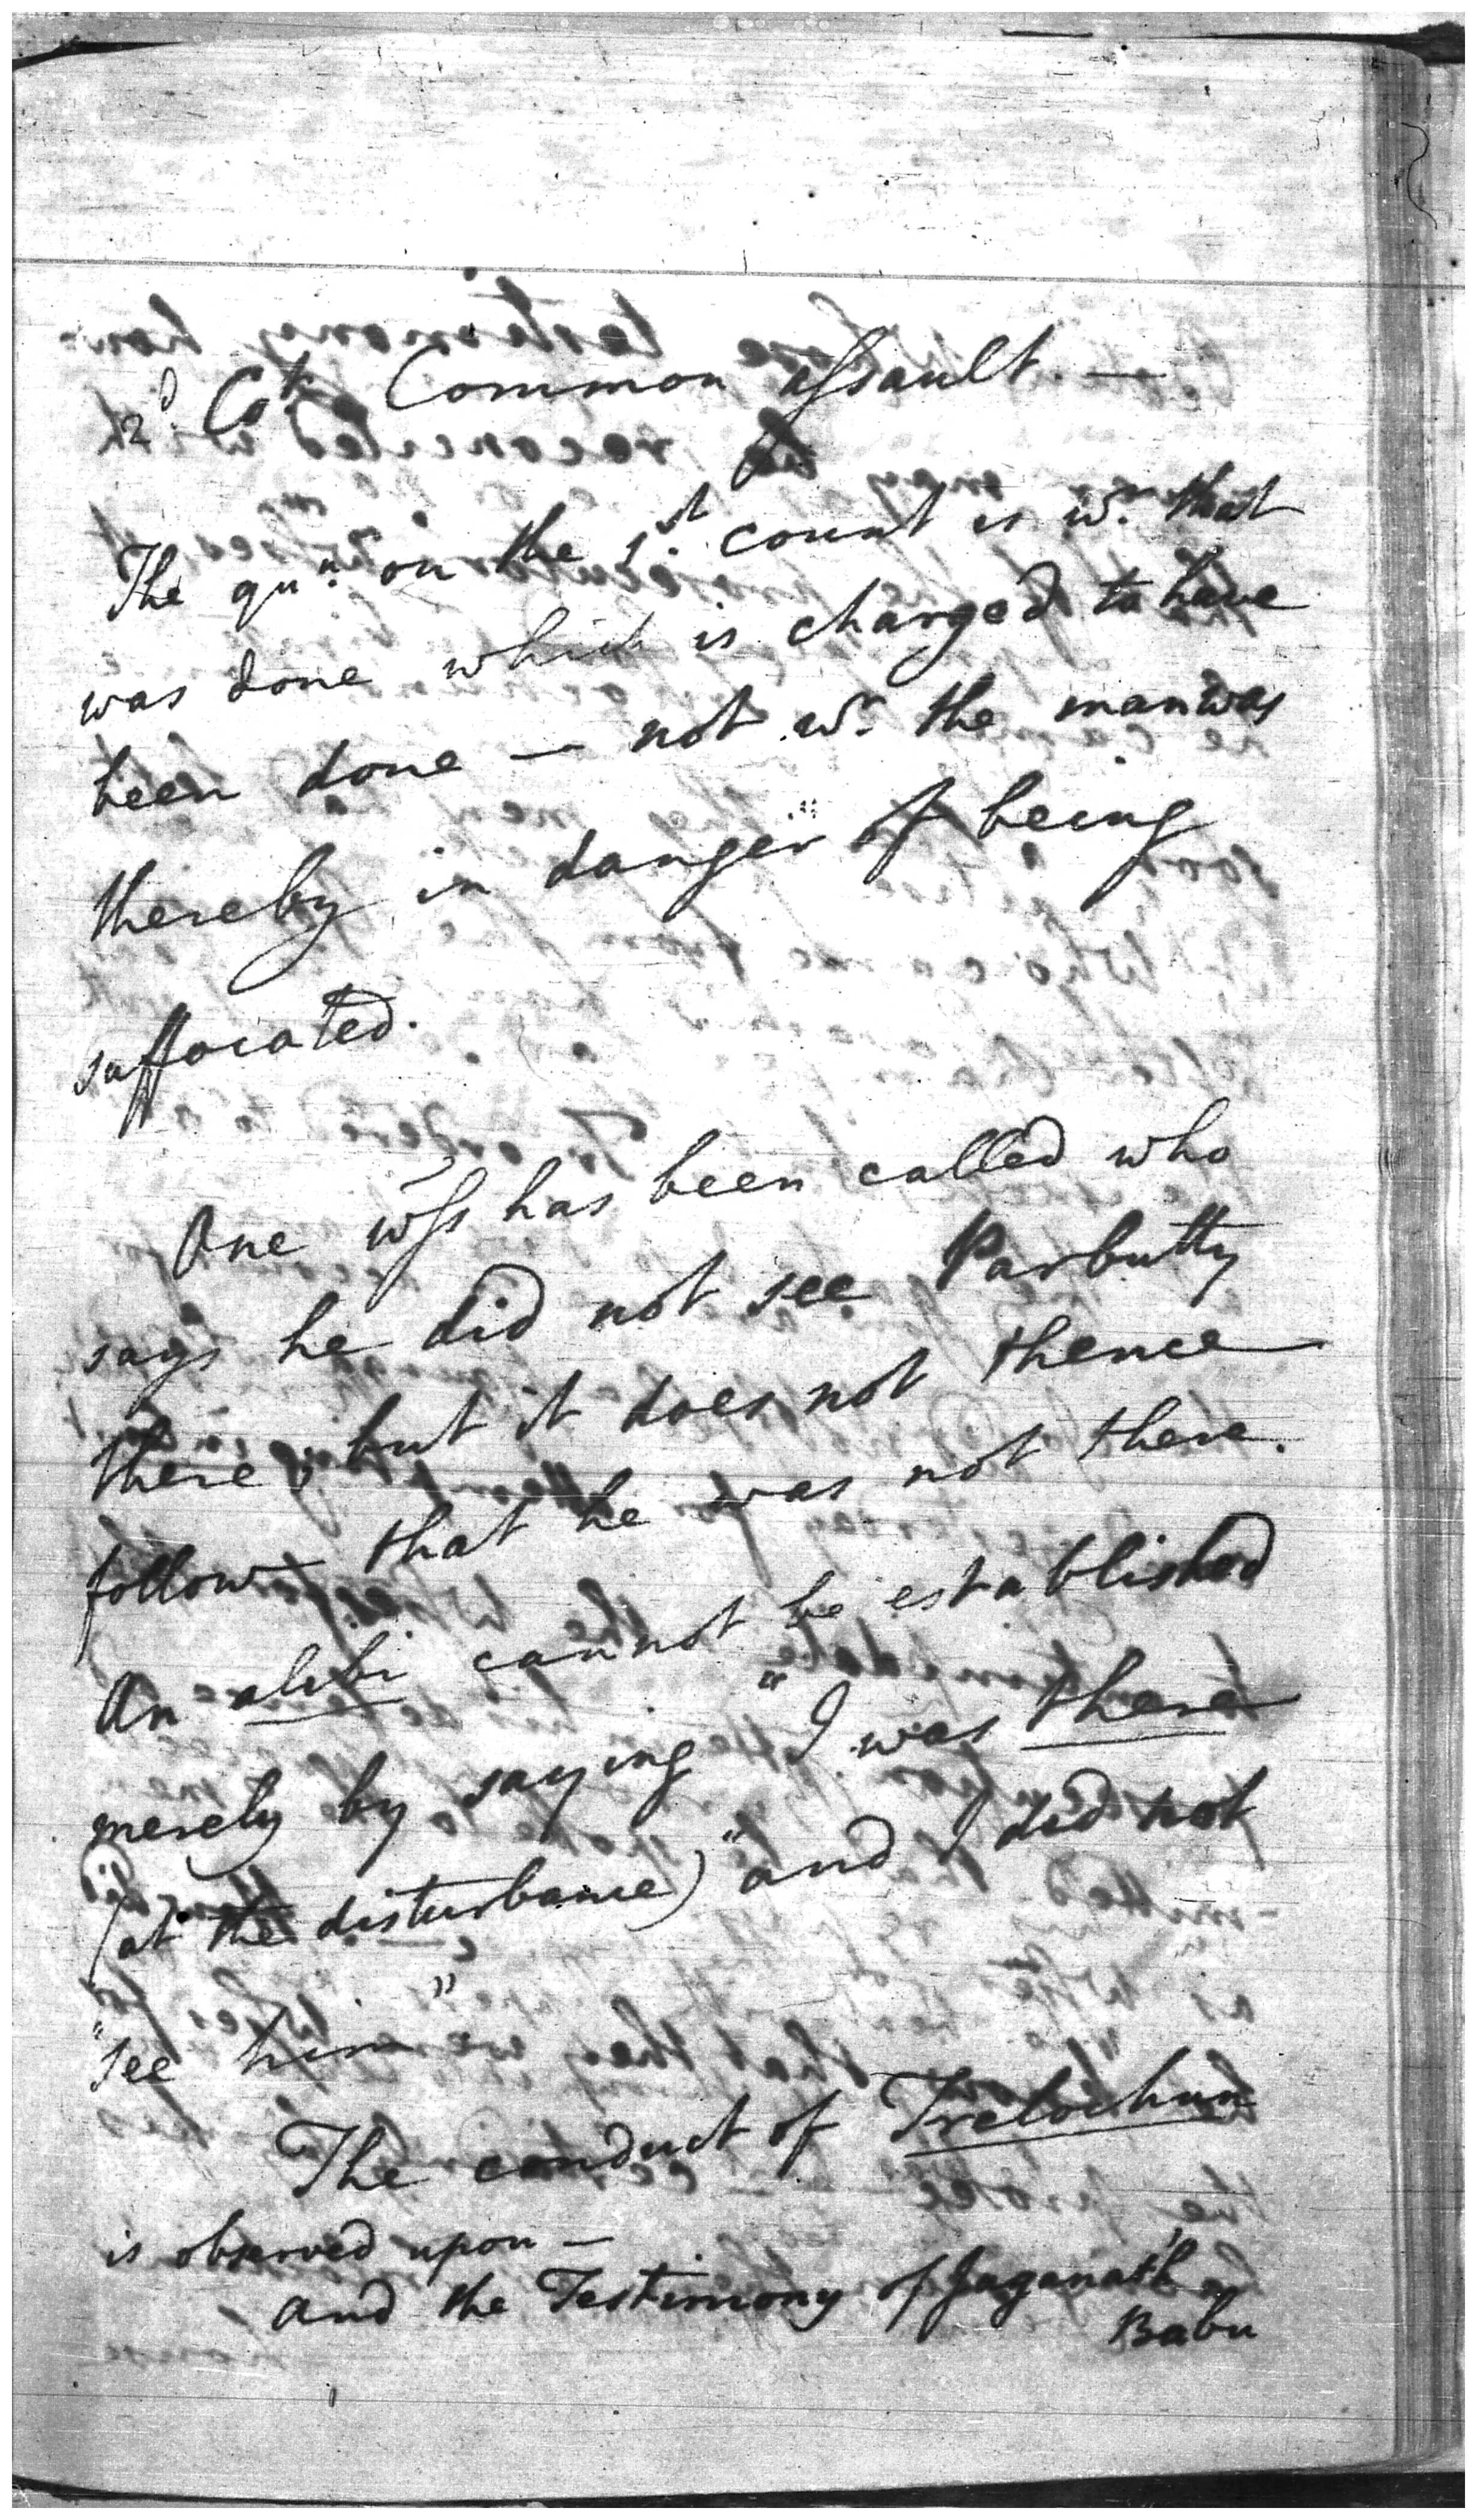 2d. Ct. Common assault. —
The qun. on the 1st. count is wr. that
was done which is charged to have
been done — not wr. the man was
thereby in danger of being
suffocated.
One wss has been called who
says he did not see Parbutty
there, but it does not thence
follow that he was not there.
An alibi cannot be established
merely by saying "I was there
(at the disturbance) "and I did not
"see him"
The conduct of Trelochun
is observed upon —
and the Testimony of Jaganath
Babu